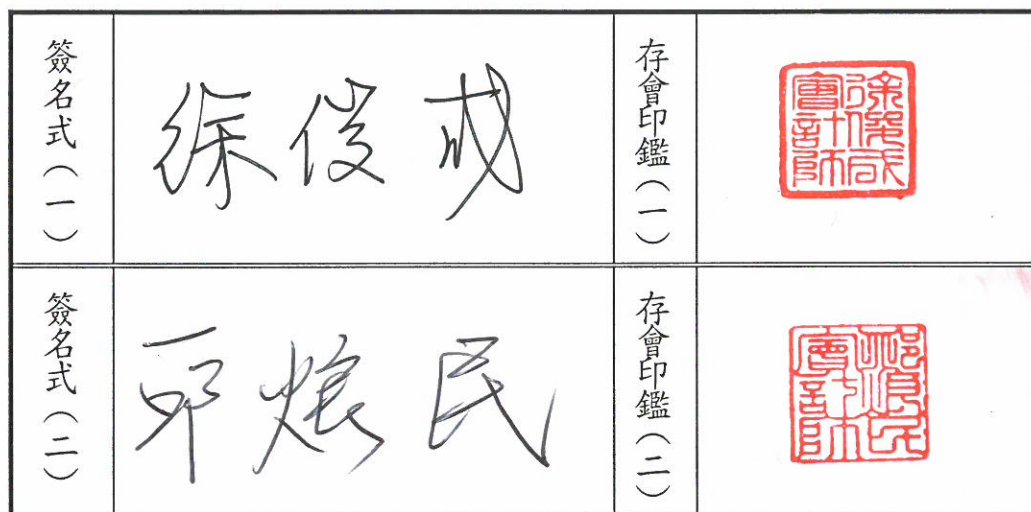 簽名式（一）
徐俊成
存會印鑑（一）
徐俊成
會計師
簽名式（二）
民
存會印鑑（二）
民
會計師